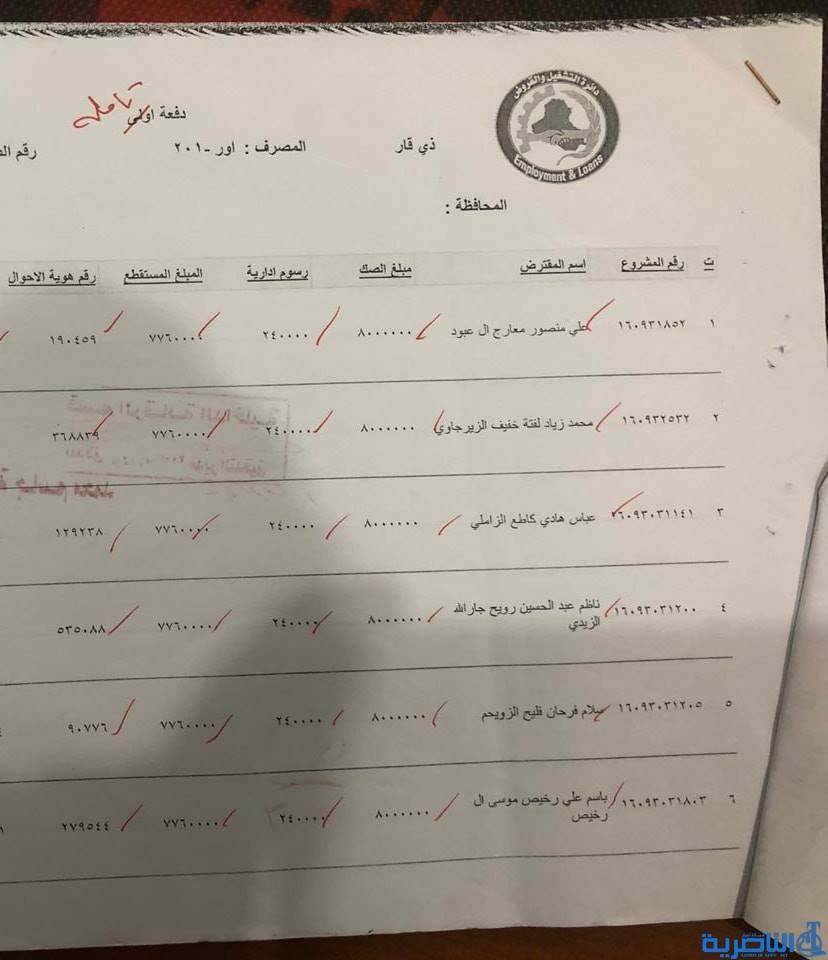 دائرة التشغيل والقروض
Employment & Loans
دفعة اولى
تأمله
ذي قار
المصرف : اور -٢٠١
رقم
المحافظة :
ت رقم المشروع اسم المقترض مبلغ الصك رسوم ادارية المبلغ المستقطع رقم هوية الاحوال
١ ١٦٠٩٣١٨٥٢ علي منصور معارج ال عبود ٨٠٠٠٠٠٠ ٢٤٠٠٠٠ ٧٧٦٠٠٠٠ ١٩٠٤٥٩
٢ ١٦٠٩٣٢٥٣٢ محمد زياد لفتة خفيف الزيرجاوي ٨٠٠٠٠٠٠ ٢٤٠٠٠٠ ٧٧٦٠٠٠٠ ٣٦٨٨٣٩
قسم الرقابة الداخلية
٣ ١٦٠٩٣٠٣١١٤١ عباس هادي كاطع الزاملي ٨٠٠٠٠٠٠ ٢٤٠٠٠٠ ٧٧٦٠٠٠٠ ١٢٩٢٣٨
٤ ١٦٠٩٣٠٣١٢٠٠ ناظم عبد الحسين رويح جارالله ٨٠٠٠٠٠٠ ٢٤٠٠٠٠ ٧٧٦٠٠٠٠ ٥٣٥٠٨٨
الزيدي
٥ ١٦٠٩٣٠٣١٢٠٥ سلام فرحان فليح الزويحم ٨٠٠٠٠٠٠ ٢٤٠٠٠٠ ٧٧٦٠٠٠٠ ٩٠٧٧٦
٦ ١٦٠٩٣٠٣١٨٠٣ باسم علي رخيص موسى ال ٨٠٠٠٠٠٠ ٢٤٠٠٠٠ ٧٧٦٠٠٠٠ ٢٧٩٥٤٤
رخيص
الناصرية